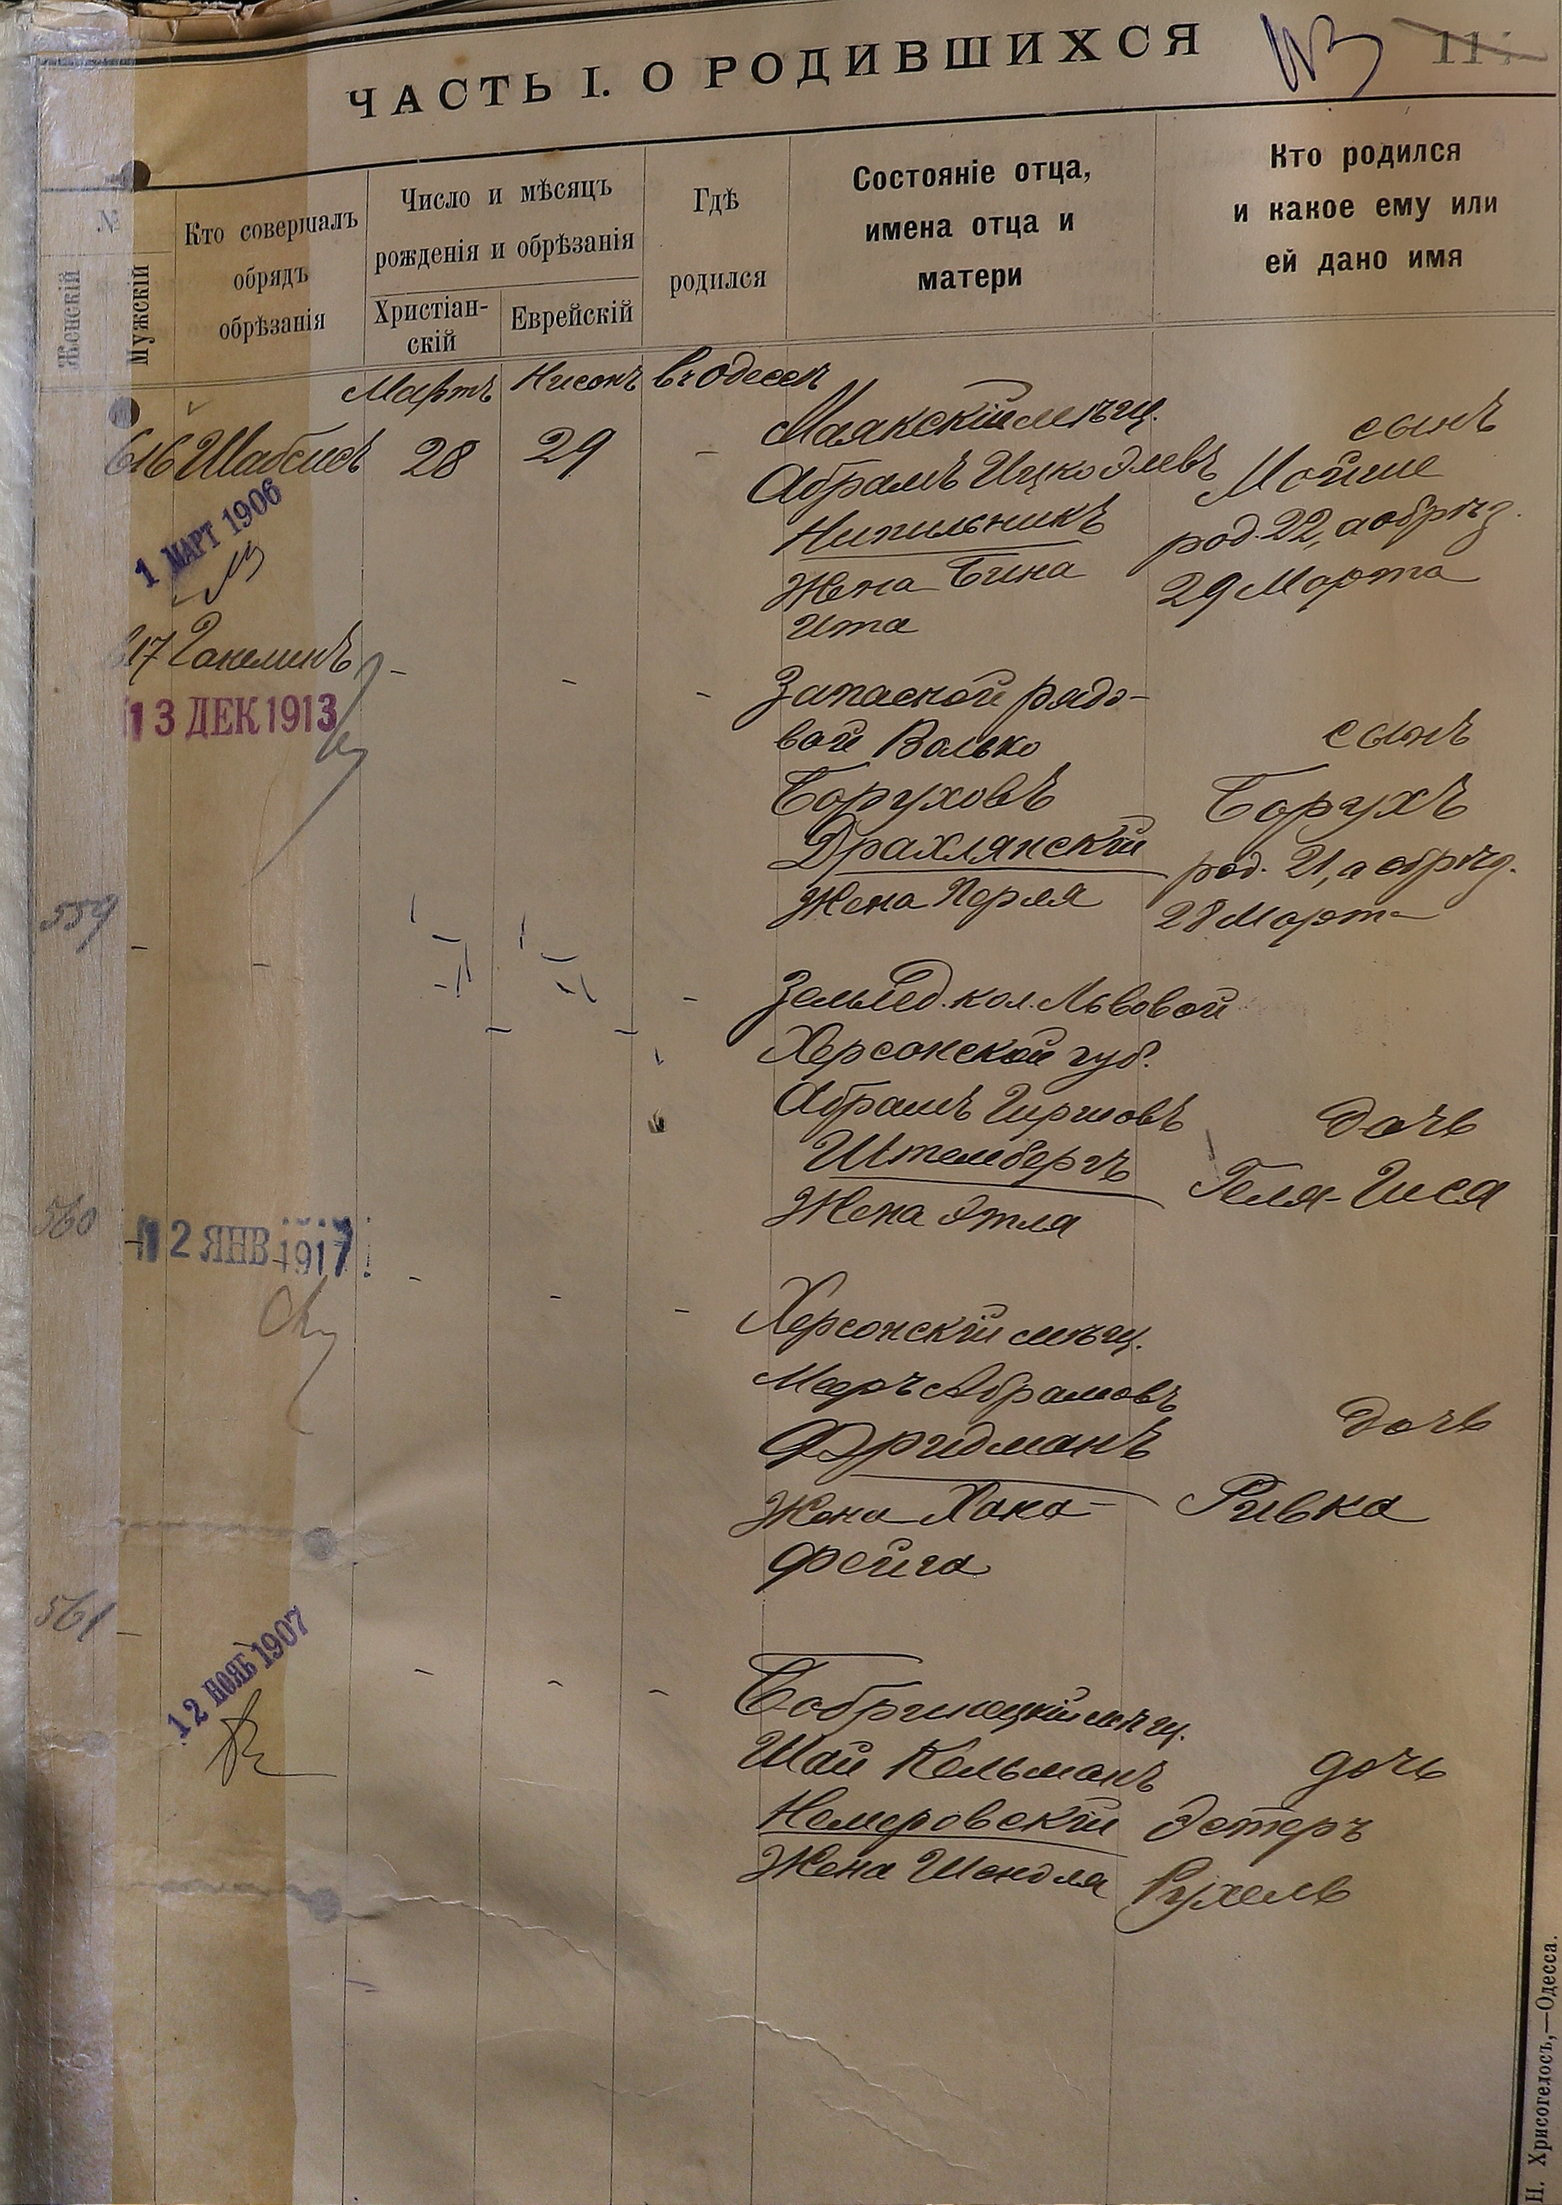 ЧАСТЬ I. О РОДИВШИХСЯ
113
11
№
Женскій
Мужскій
Кто совершалъ
обрядъ
обрѣзанія
Число и мѣсяцъ
рожденія и обрѣзанія
Христіан-
скій
Еврейскій
Гдѣ
родился
Состояніе отца,
имена отца и
матери
Кто родился
и какое ему или
ей дано имя
Мартъ Нисонъ въ Одессѣ
616 Шабсисъ 28 29 -
Маякскій мѣщ.
Абрамъ Ицко Элевъ
Нипильникъ
Жена Бина
Ита
сынъ
Мойше
род. 22, а обрѣз.
29 Марта
1 МАРТ 1906
617
13 ДЕК 1913
Запасной рядо-
вой Волько
Боруховъ
Драхлянскій
Жена Перля
сынъ
Борухъ
род. 21, а обрѣз.
28 Марта
559
Землед. кол. Львовой
Херсонской губ.
Абрамъ Гиршовъ
Штембергъ
Жена Этля
дочь
Геля-Гися
560
12 ЯНВ 1917
Херсонскій мѣщ.
Меръ Абрамовъ
Фридманъ
Жена Хана-
Фейга
дочь
Ривка
561
12 НОЯБ 1907
Бобринецкій мѣщ.
Шаи Кельманъ
Немеровскій
Жена Шендля
дочь
Эстеръ
Рухель
Н. Хрисогелосъ,—Одесса.